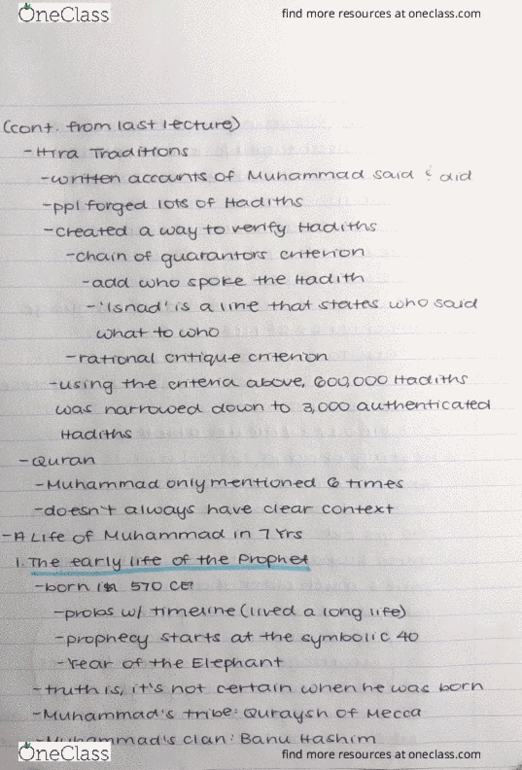 OneClass
find more resources at oneclass.com
(cont. from last lecture)
-Hira Traditions
-written accounts of Muhammad said & did
-ppl forged lots of Hadiths
-created a way to verify Hadiths
-chain of guarantors criterion
-add who spoke the Hadith
-'Isnad' is a line that states who said
what to who
-rational critique criterion
-using the criteria above, 600,000 Hadiths
was narrowed down to 3,000 authenticated
Hadiths
-Quran
-Muhammad only mentioned 6 times
-doesn't always have clear context
-A Life of Muhammad in 7 Yrs
1. The early life of the Prophet
-born in 570 CE?
-probs w/ timeline (lived a long life)
-prophecy starts at the symbolic 40
-Year of the Elephant
-truth is, it's not certain when he was born
-Muhammad's tribe: Quraysh of Mecca
-Muhammad's clan: Banu Hashim
OneClass
find more resources at oneclass.com